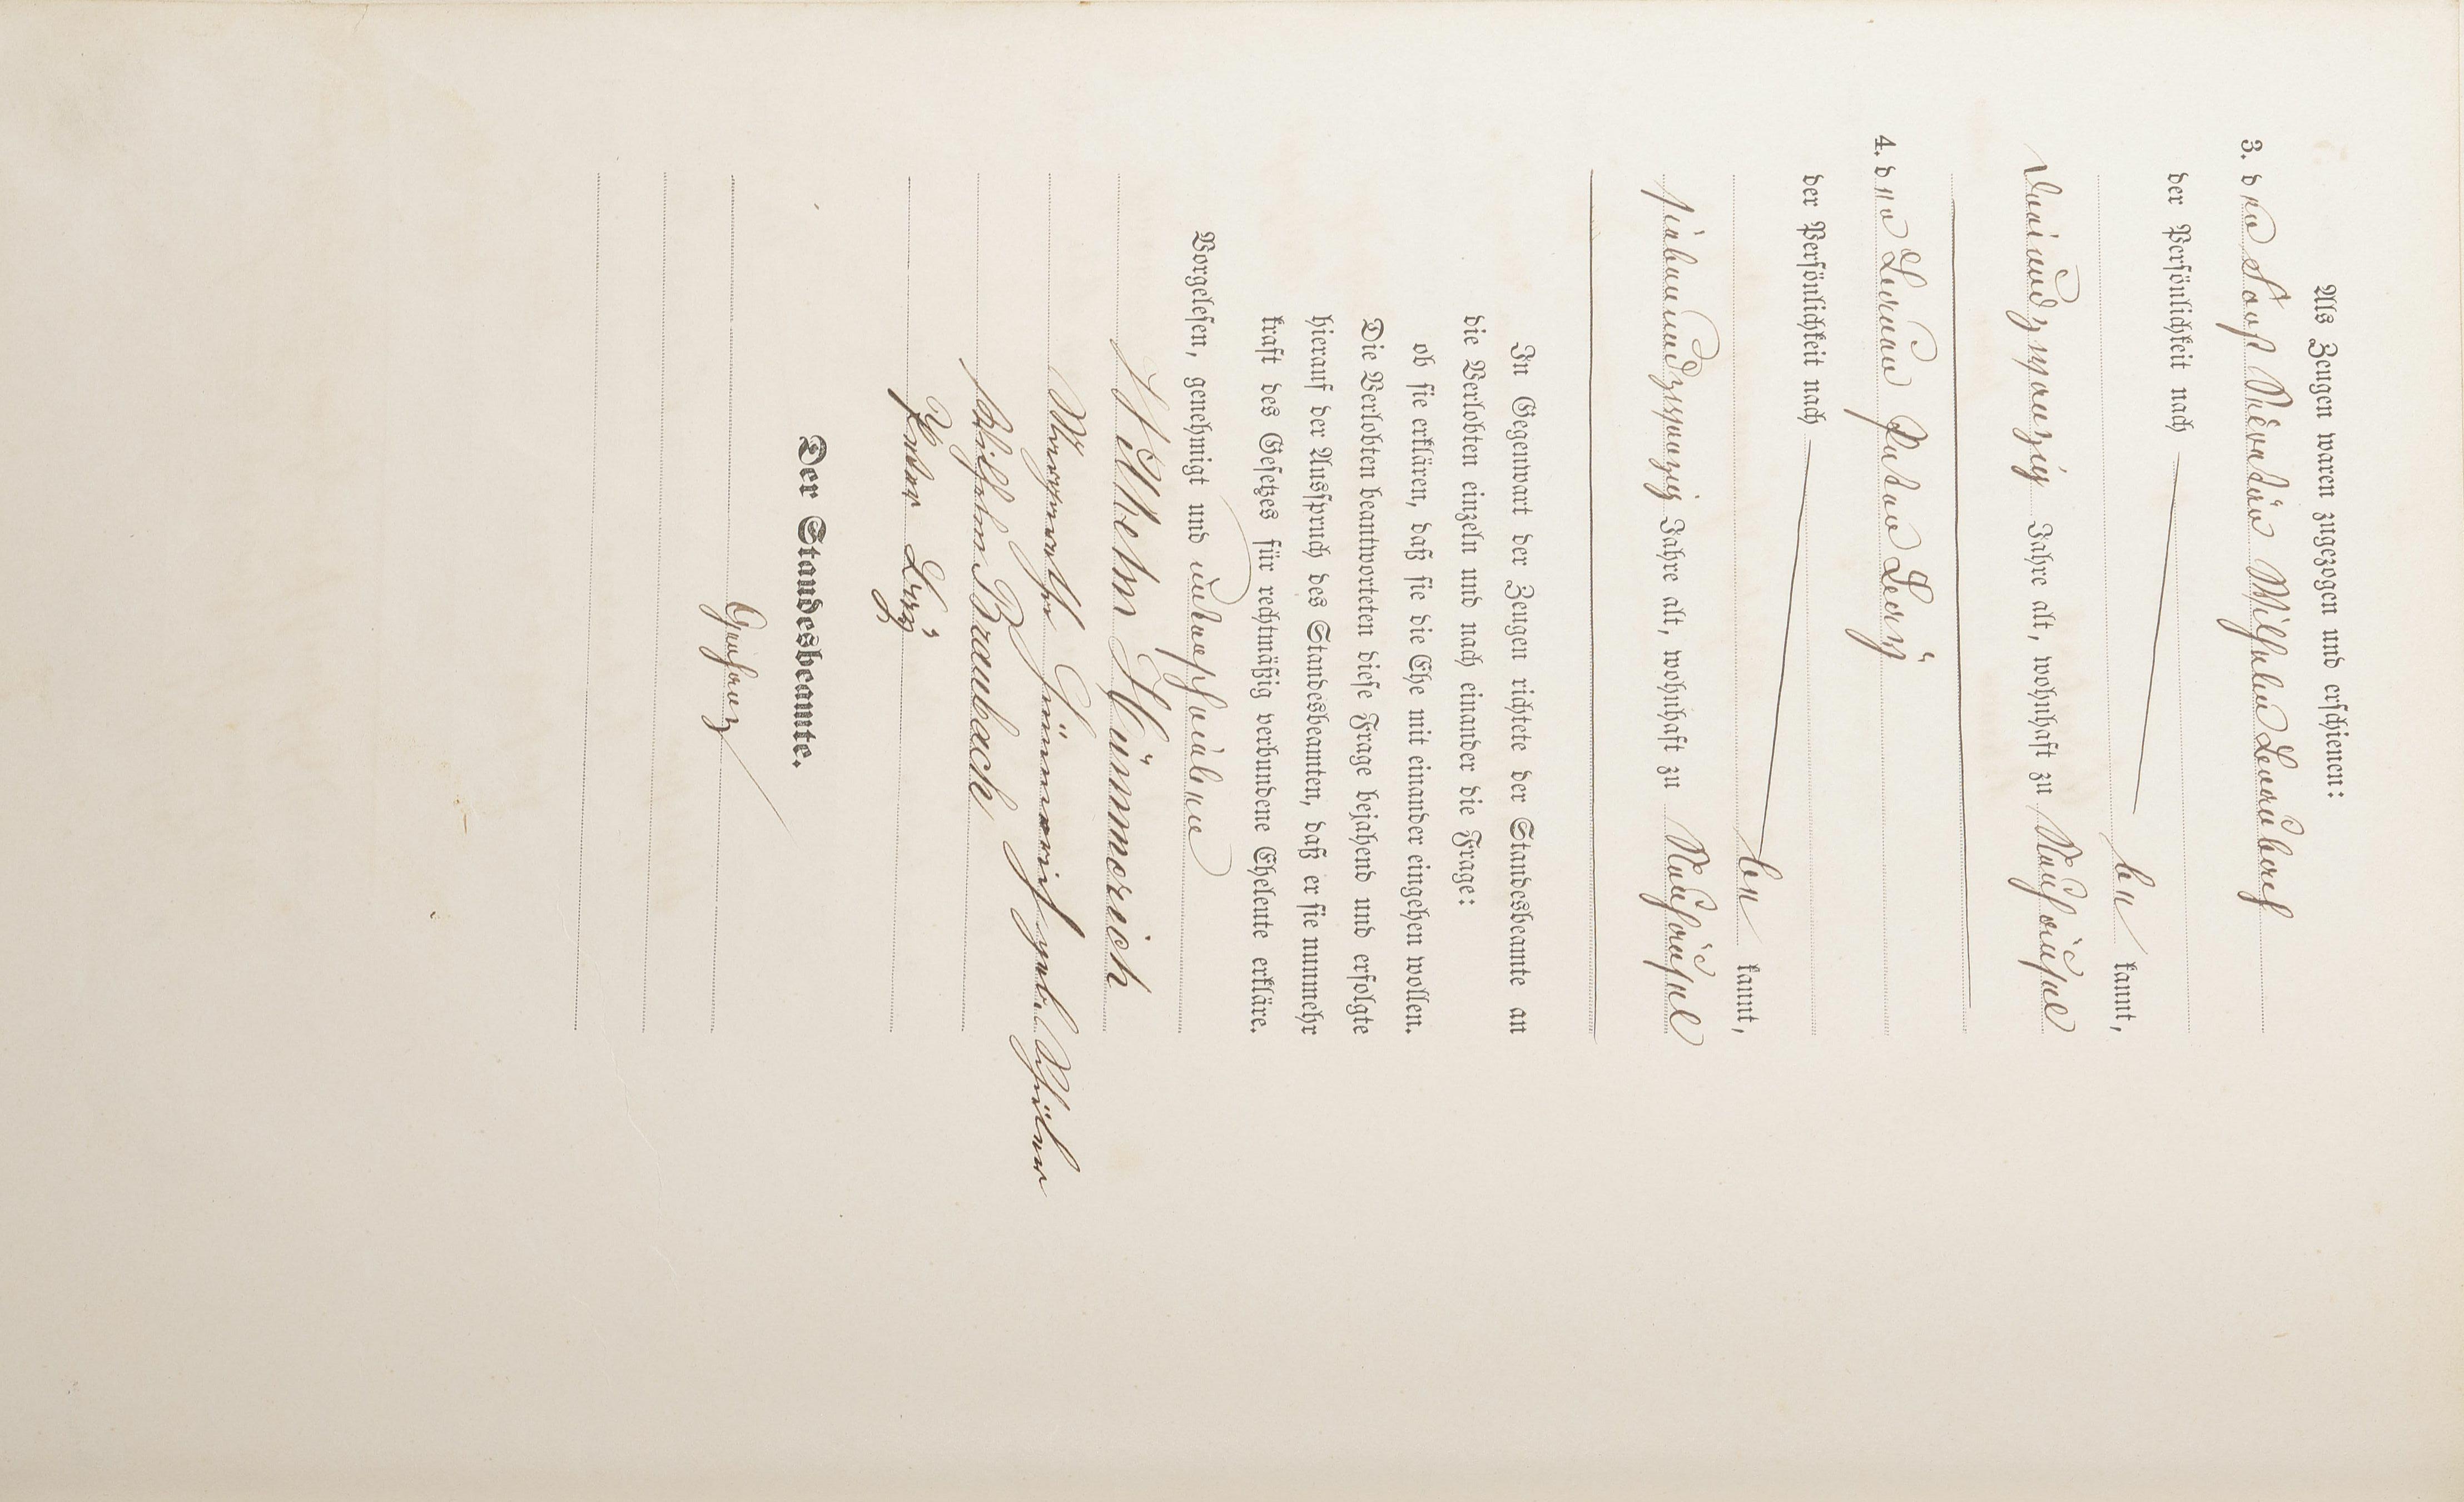 Als Zeugen waren zugezogen und erschienen:
3. der Wilhelm Braubach
der Persönlichkeit nach
be kannt,
dreiundzwanzig Jahre alt, wohnhaft zu Neuhäusel
4. der Peter
der Persönlichkeit nach
be kannt,
siebenundzwanzig Jahre alt, wohnhaft zu Neuhäusel
In Gegenwart der Zeugen richtete der Standesbeamte an
die Verlobten einzeln und nach einander die Frage:
ob sie erklären, daß sie die Ehe mit einander eingehen wollen.
Die Verlobten beantworteten diese Frage bejahend und erfolgte
hierauf der Ausspruch des Standesbeamten, daß er sie nunmehr
kraft des Gesetzes für rechtmäßig verbundene Eheleute erkläre.
Vorgelesen, genehmigt und unterschrieben
Wilhelm Hümmerich
Margaretha Hümmerich geb.
Wilhelm Braubach
Peter
Der Standesbeamte.